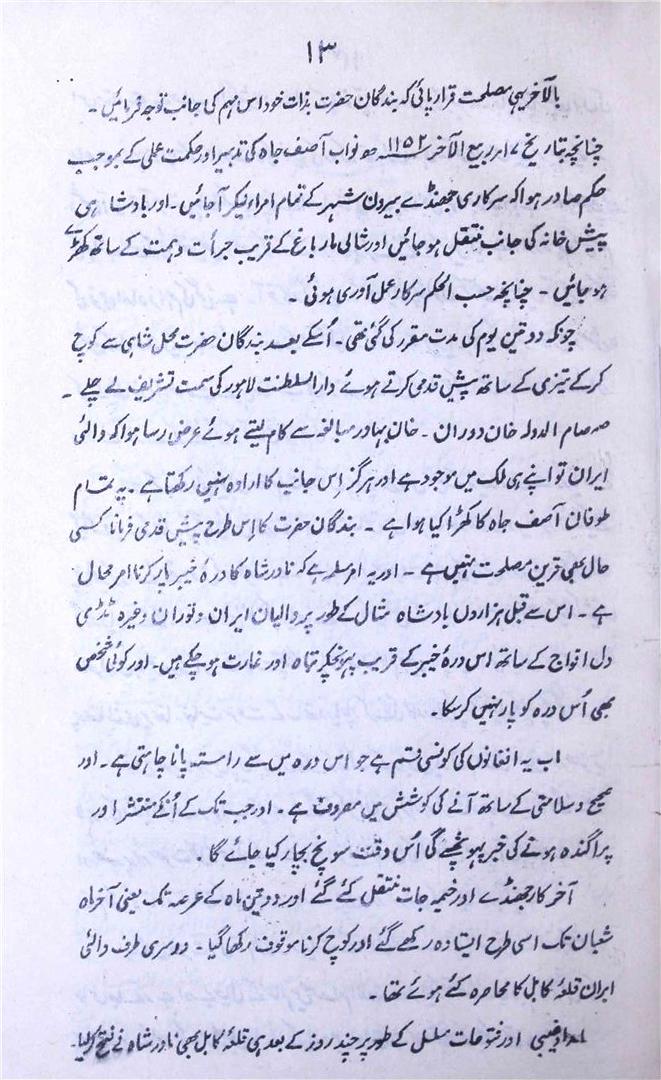 ۱۳
بالآخر یہی مصلحت قرار پائی کہ بندگان حضرت بذات خود اس مہم کی جانب توجہ فرمائیں ۔
چنانچہ بتاریخ ۱۷ ربیع الآخر ۱۱۵۲ھ نواب آصف جاہ کی تدبیر اور حکمت عملی کے بموجب
حکم صادر ہوا کہ سرکاری جھنڈے بیرون شہر کے تمام امراء لیکر آجائیں ۔ اور بادشاہی
پیش خانہ کی جانب منتقل ہو جائیں اور شالی مار باغ کے قریب جرأت و ہمت کے ساتھ کھڑے
ہو جائیں ۔ چنانچہ حسب الحکم سرکار عمل آوری ہوئی ۔
چونکہ دو تین یوم کی مدت مقرر کی گئی تھی ۔ اُسکے بعد بندگان حضرت محل شاہی سے کوچ
کر کے تیزی کے ساتھ پیش قدمی کرتے ہوئے دارالسلطنت لاہور کی سمت تشریف لے چلے ۔
صمصام الدولہ خان دوران ۔ خان بہادر مبالغہ سے کام لیتے ہوئے عرض رسا ہوا کہ والئی
ایران تو اپنے ہی ملک میں موجود ہے اور ہرگز اِس جانب کا ارادہ نہیں رکھتا ہے ۔ یہ تمام
طوفان آصف جاہ کا کھڑا کیا ہوا ہے ۔ بندگان حضرت کا اِس طرح پیش قدمی فرمانا کسی
حال بھی قرین مصلحت نہیں ہے ۔ اور یہ امر مسلمہ ہے کہ نادر شاہ کا درۂ خیبر پار کرنا امر محال
ہے ۔ اس سے قبل ہزاروں بادشاہ مثال کے طور پر والیان ایران و توران وغیرہ ٹڈی
دل افواج کے ساتھ اس درۂ خیبر کے قریب پہونچکر تباہ اور غارت ہو چکے ہیں ۔ اور کوئی شخص
بھی اُس درہ کو پار نہیں کر سکا ۔
اب یہ افغانوں کی کونسی قسم ہے جو اس درہ میں سے راستہ پانا چاہتی ہے ۔ اور
صحیح و سلامتی کے ساتھ آنے کی کوشش میں مصروف ہے ۔ اور جب تک کے اُنکے منتشر اور
پراگندہ ہونے کی خبر پہونچے گی اُس وقت سونچ بچار کیا جائے گا ۔
آخر کار جھنڈے اور خیمہ جات منتقل کئے گئے اور دو تین ماہ کے عرصہ تک یعنی آخر ماہ
شعبان تک اسی طرح ایستادہ رکھے گئے اور کوچ کرنا موقوف رکھا گیا ۔ دوسری طرف والئی
ایران قلعۂ کابل کا محاصرہ کئے ہوئے تھا ۔
امداد غیبی اور فتوحات مسلسل کے طور پر چند روز کے بعد ہی قلعۂ کابل بھی نادر شاہ نے فتح کرلیا ۔